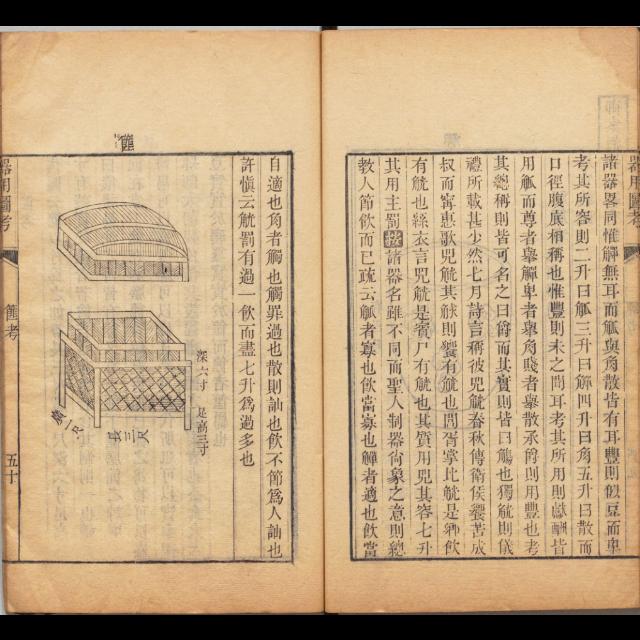 器用圖考
諸器畧同惟觶無耳而觚與角散皆有耳豐則似豆而卑
考其所容則二升曰觚三升曰觶四升曰角五升曰散而
口徑腹底相稱也惟豐則未之聞耳考其所用則獻酬皆
用觚而尊者舉觶卑者舉角賤者舉散承爵則用豐也考
其緫稱則皆可名之曰爵而其實則皆曰觴也獨觥則儀
禮所載甚少然七月詩言稱彼兕觥春秋傳衛侯饗苦成
叔而甯惠歌兕觥其觩則饗有觥也閭胥掌比觥是鄉飲
有觥也絲衣言兕觥是賓尸有觥也其質用兕其容七升
其用主罰按諸器名雖不同而聖人制器尙象之意則緫
教人節飲而已疏云觚者寡也飲當寡也觶者適也飲當
自適也角者觸也觸罪過也散則訕也飲不節爲人訕也
許愼云觥罰有過一飲而盡七升爲過多也
篚
深六寸
足高三寸
長三尺
廣一尺
器用圖考
篚考
五十